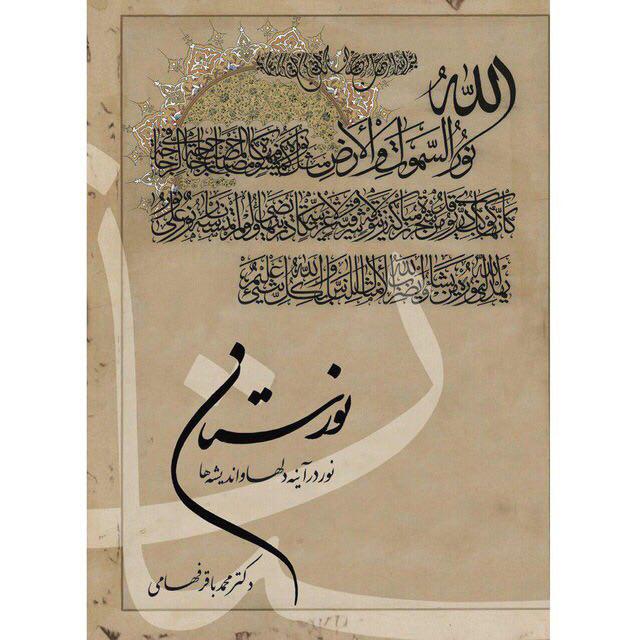 الله
نور السموات والأرض مثل نوره كمشكوة فيها مصباح المصباح في زجاجة الزجاجة
كأنها كوكب دري يوقد من شجرة مباركة زيتونة لا شرقية ولا غربية يكاد زيتها يضيء ولو لم تمسسه نار نور على نور
يهدي الله لنوره من يشاء ويضرب الله الأمثال للناس والله بكل شيء عليم
نورستان
نور در آینه دلها و اندیشه ها
دکتر محمد باقر فهامی